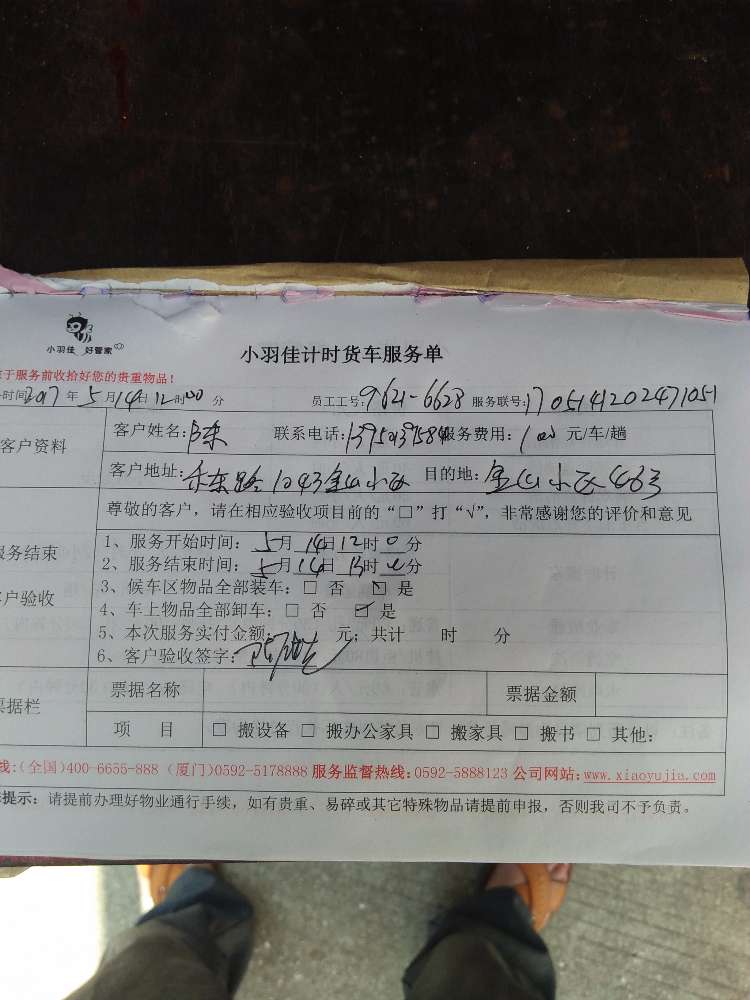 小羽佳 好管家
小羽佳计时货车服务单
于服务前收拾好您的贵重物品！
时间2017年5月14日12时00分 员工工号:9621-6628 服务联号:1705141202471051
客户资料
客户姓名:陈 联系电话: 服务费用:100元/车/趟
客户地址:禾东路1043金山小区 目的地:金山小区463号
尊敬的客户，请在相应验收项目前的“□”打“√”，非常感谢您的评价和意见
服务结束
客户验收
1、服务开始时间:5月14日12时0分
2、服务结束时间:5月14日13时0分
3、候车区物品全部装车:□ 否 ☑ 是
4、车上物品全部卸车:□ 否 ☑ 是
5、本次服务实付金额: 元；共计 时 分
6、客户验收签字:
票据栏
票据名称 票据金额
项 目 □ 搬设备 □ 搬办公家具 □ 搬家具 □ 搬书 □ 其他:
线:(全国)400-6655-888 (厦门)0592-5178888 服务监督热线:0592-5888123 公司网站:www.xiaoyujia.com
提示: 请提前办理好物业通行手续，如有贵重、易碎或其它特殊物品请提前申报，否则我司不予负责。